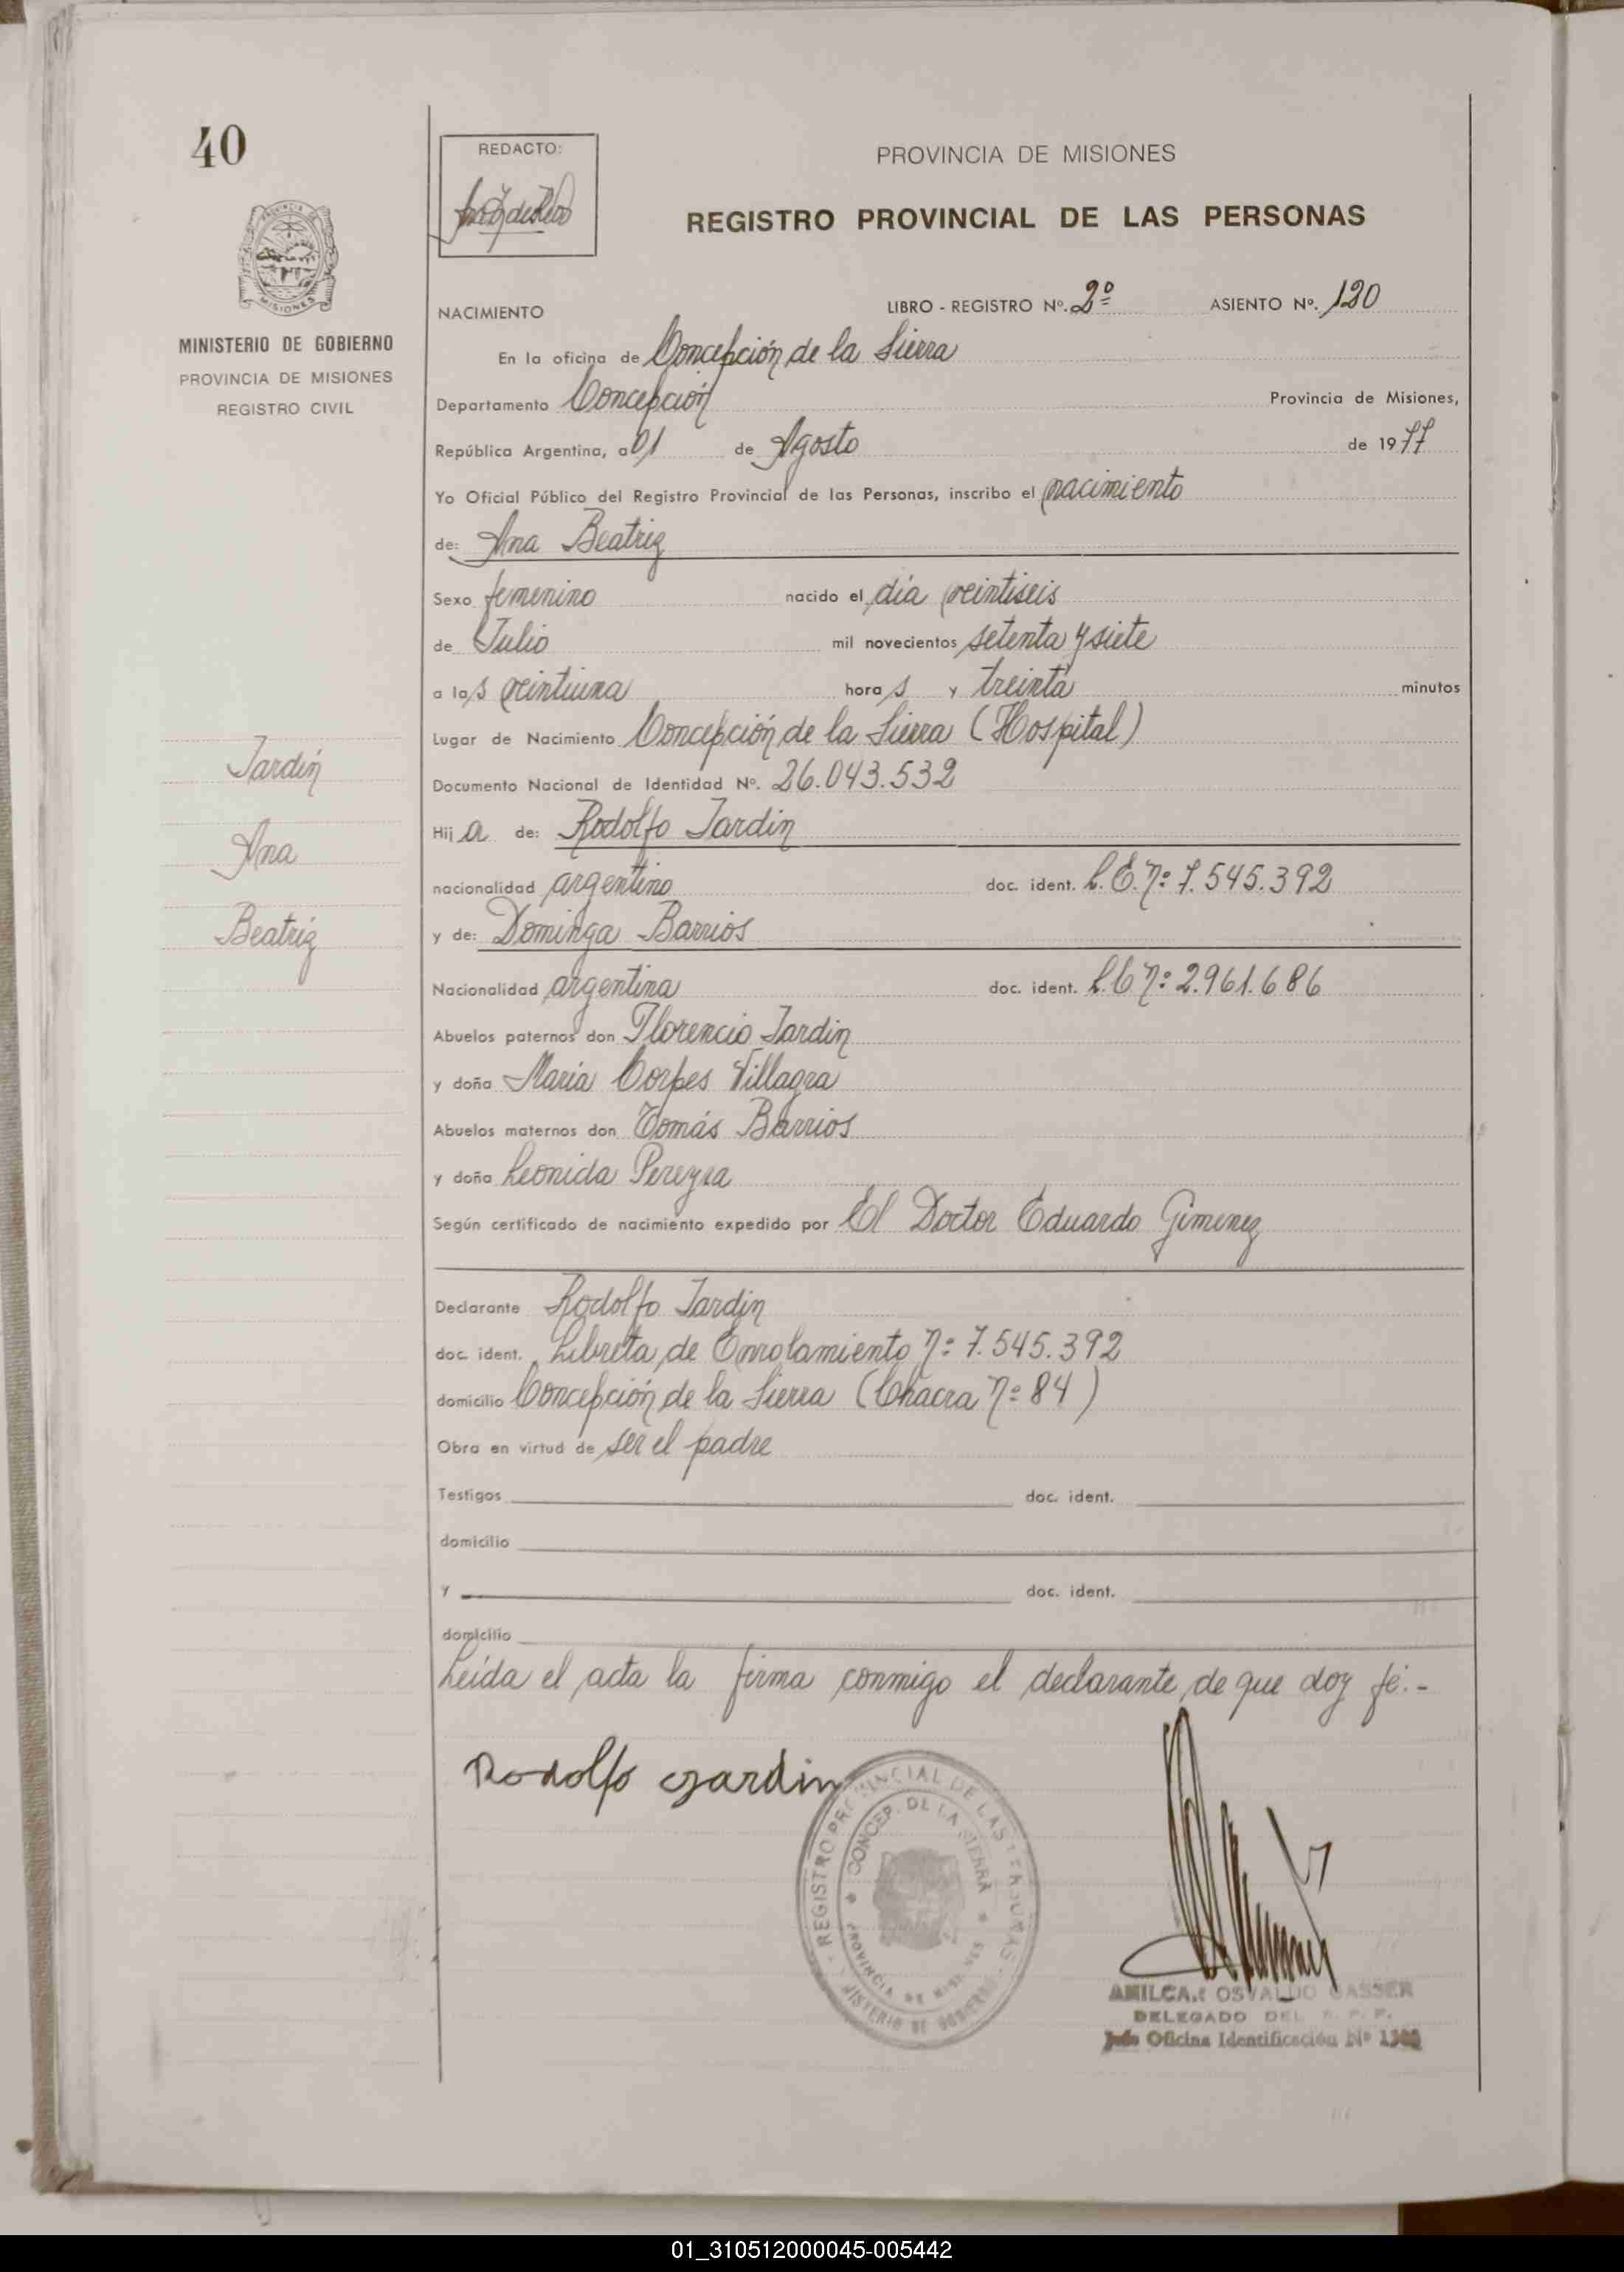 40
REDACTO:
PROVINCIA DE MISIONES
REGISTRO PROVINCIAL DE LAS PERSONAS
MISIONES
MINISTERIO DE GOBIERNO
PROVINCIA DE MISIONES
REGISTRO CIVIL
NACIMIENTO LIBRO - REGISTRO Nº. 2º ASIENTO Nº. 120
En la oficina de Concepción de la Sierra
Departamento Concepción Provincia de Misiones,
República Argentina, a 01 de Agosto de 1977
Yo Oficial Público del Registro Provincial de las Personas, inscribo el nacimiento
de: Ana Beatriz
Sexo femenino nacido el día veintiseis
de Julio mil novecientos setenta y siete
a las veintiuna horas y treinta minutos
Lugar de Nacimiento Concepción de la Sierra (Hospital)
Documento Nacional de Identidad Nº. 26.043.532
Jardín
Ana
Beatriz
Hija de: Rodolfo Jardin
nacionalidad argentino doc. ident. L.E. nº 7.545.392
y de: Dominga Barrios
Nacionalidad argentina doc. ident. L.C nº 2.961.686
Abuelos paternos don Florencio Jardin
y doña María Corpes Villagra
Abuelos maternos don Tomás Barrios
y doña Leonida Pereyra
Según certificado de nacimiento expedido por El Doctor Eduardo Gimenez
Declarante Rodolfo Jardin
doc. ident. Libreta de Enrolamiento nº 7.545.392
domicilio Concepción de la Sierra (Chacra nº 84)
Obra en virtud de ser el padre
Testigos doc. ident.
domicilio
y doc. ident.
domicilio
Leída el acta la firma conmigo el declarante, de que doy fé.-
Rodolfo Jardin
REGISTRO PROVINCIAL DE LAS PERSONAS
CONCEP. DE LA SIERRA
PROVINCIA DE MISIONES
MINISTERIO DE GOBIERNO
AMILCAR OSVALDO GASSER
DELEGADO DEL R. P. P.
Jefe Oficina Identificación Nº
01_310512000045-005442